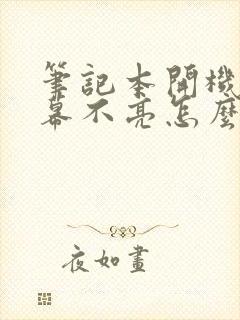 筆記本開機
幕不亮怎麼
夜如晝